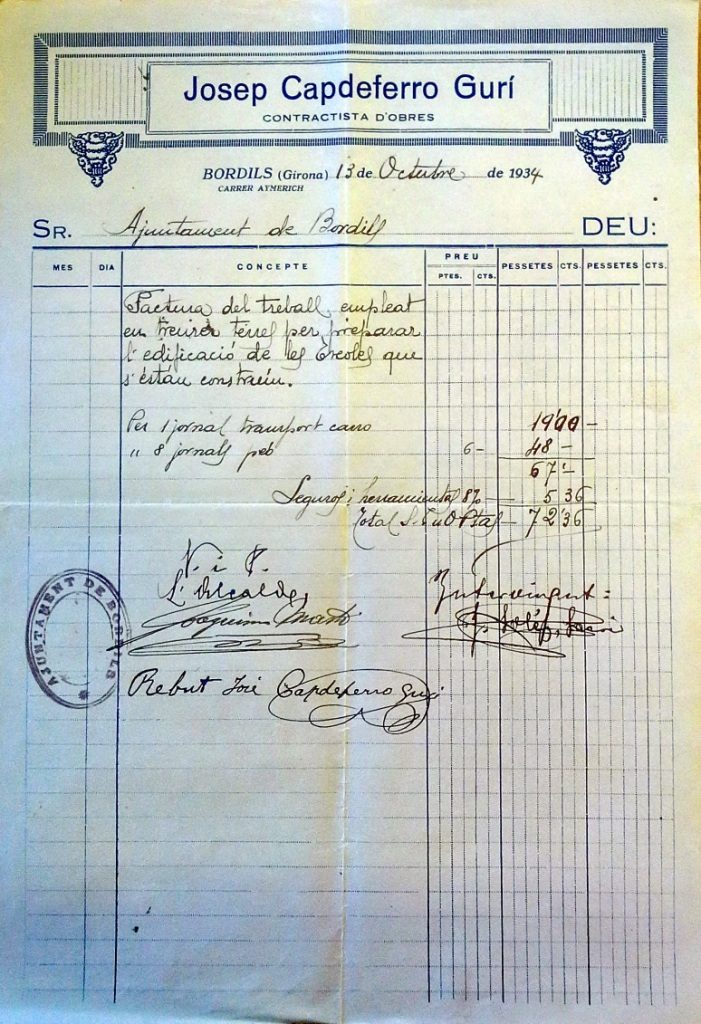 Josep Capdeferro Gurí
CONTRACTISTA D'OBRES
BORDILS (Girona) 13 de Octubre de 1934
CARRER AYMERICH
SR. Ajuntament de Bordils DEU:
MES DIA CONCEPTE PREU PTES. CTS. PESSETES CTS. PESSETES CTS.
Factura del treball, empleat
en treurer terres per preparar
l'edificació de les Escoles que
s'estàn construin.
Per 1 jornal transport carro 19'00 -
" 8 jornals peó 6 - 48 -
67 ' -
Seguros i herramientas 8% - 5 36
Total S. E u O Ptas - 72'36
V. i P.
L'Alcalde, Intervingut:
Joaquim
AJUNTAMENT DE BORDILS
Rebut José Capdeferro Guri